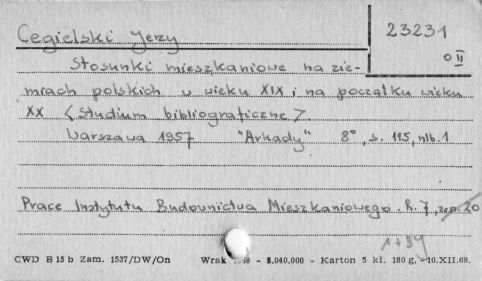 Cegielski Jerzy
23231
o II
Stosunki mieszkaniowe na zie-
miach polskich w wieku XIX i na początku wieku
XX <studium bibliograficzne>.
Warszawa 1957 "Arkady" 8°, s. 115, nlb. 1
Prace Instytutu Budownictwa Mieszkaniowego. R. 7, zesz. 20
1+34
CWD B 15 b Zam. 1537/DW/On Wrak - 5.040.000 - Karton 5 kl. 180 g. - 10.XII.68.